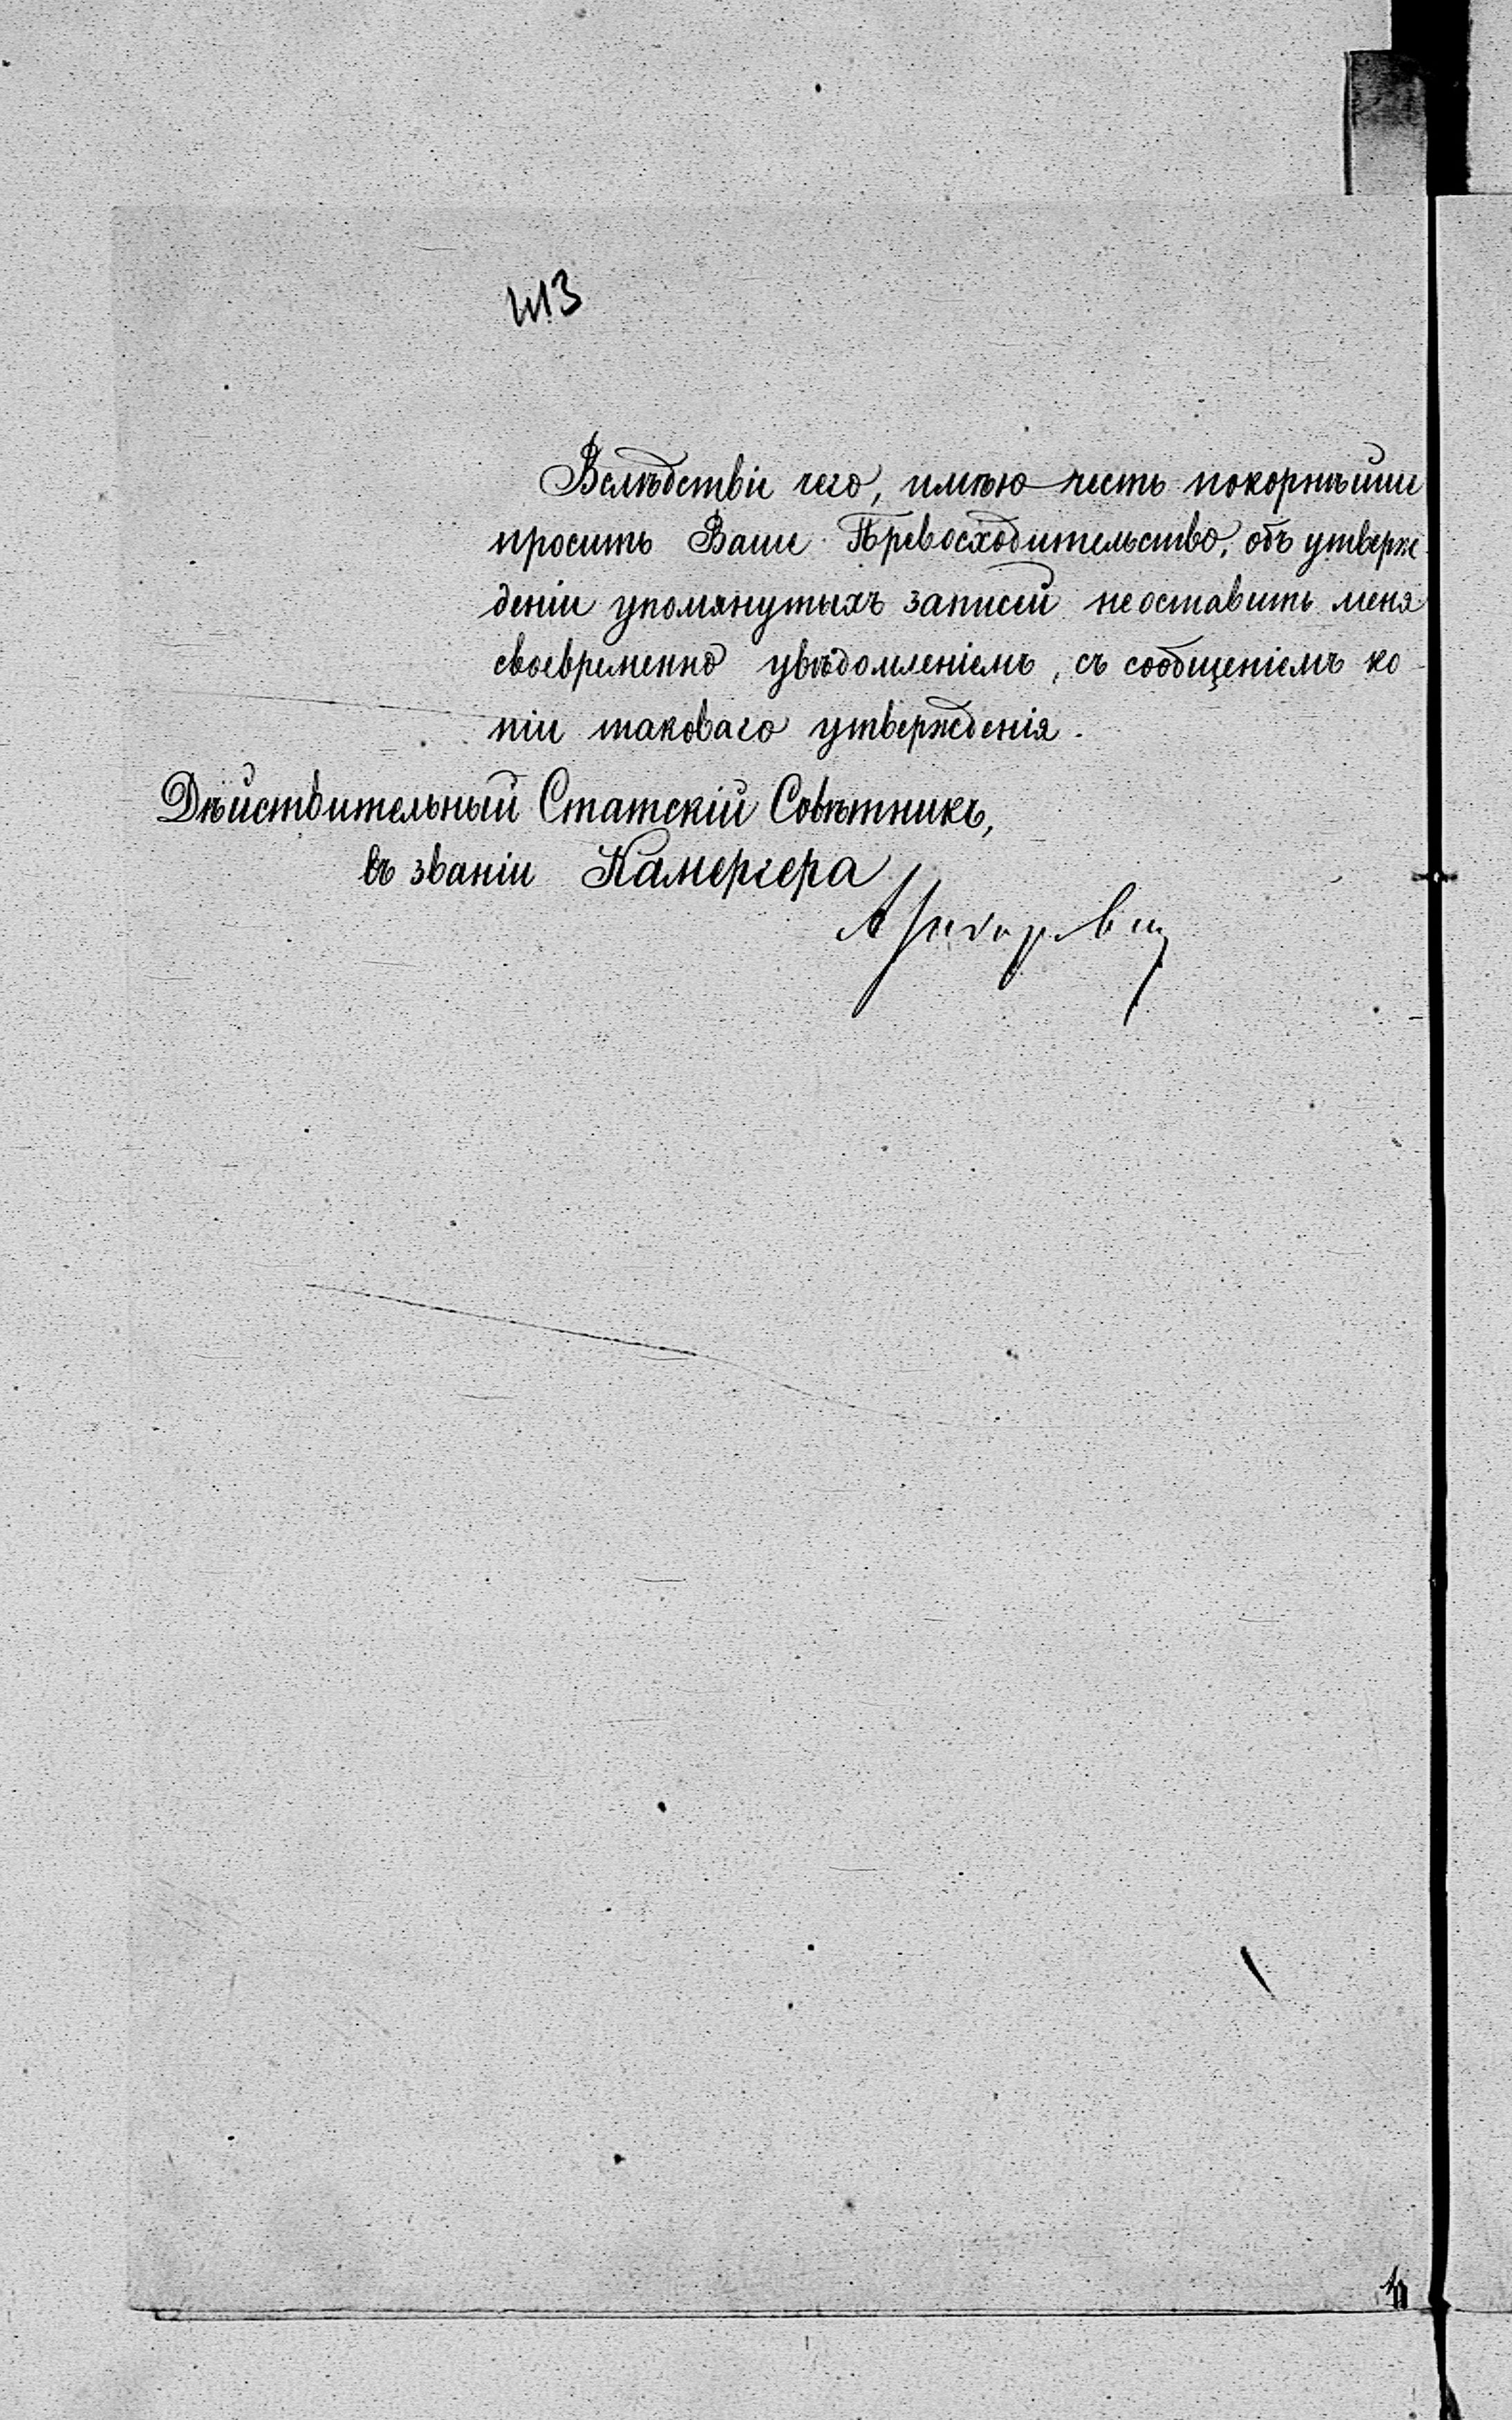 413
Вслѣдствіе чего, имѣю честь покорнѣйше
просить Ваше Превосходительство, объ утверж
деніи упомянутыхъ записей неоставить меня
своевременно увѣдомленіемъ, съ сообщеніемъ ко-
піи таковаго утвержденія.
Дѣйствительный Статскій Совѣтникъ,
въ званіи Камергера